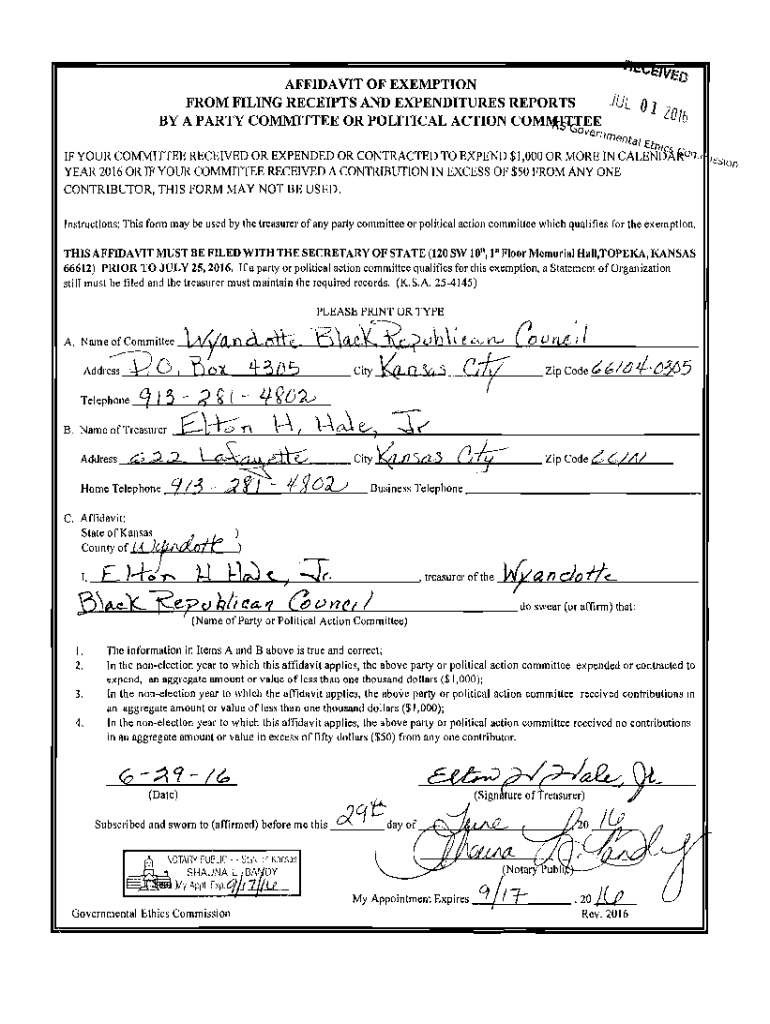 RECEIVED
JUL 01 2016
KS Governmental Ethics Commission
AFFIDAVIT OF EXEMPTION
FROM FILING RECEIPTS AND EXPENDITURES REPORTS
BY A PARTY COMMITTEE OR POLITICAL ACTION COMMITTEE
IF YOUR COMMITTEE RECEIVED OR EXPENDED OR CONTRACTED TO EXPEND $1,000 OR MORE IN CALENDAR
YEAR 2016 OR IF YOUR COMMITTEE RECEIVED A CONTRIBUTION IN EXCESS OF $50 FROM ANY ONE
CONTRIBUTOR, THIS FORM MAY NOT BE USED.
Instructions: This form may be used by the treasurer of any party committee or political action committee which qualifies for the exemption.
THIS AFFIDAVIT MUST BE FILED WITH THE SECRETARY OF STATE (120 SW 10th, 1st Floor Memorial Hall, TOPEKA, KANSAS
66612) PRIOR TO JULY 25, 2016. If a party or political action committee qualifies for this exemption, a Statement of Organization
still must be filed and the treasurer must maintain the required records. (K.S.A. 25-4145)
PLEASE PRINT OR TYPE
A. Name of Committee Wyandotte Black Republican Council
Address P.O. Box 4305 City Kansas City Zip Code 66104-0305
Telephone 913-281-4802
B. Name of Treasurer Elton H. Hale, Jr
Address 622 Lafayette City Kansas City Zip Code
Home Telephone 913-281-4802 Business Telephone
C. Affidavit:
State of Kansas )
County of Wyandotte )
I, Elton H Hale, Jr. , treasurer of the Wyandotte
Black Republican Council do swear (or affirm) that:
(Name of Party or Political Action Committee)
1. The information in Items A and B above is true and correct;
2. In the non-election year to which this affidavit applies, the above party or political action committee expended or contracted to
expend, an aggregate amount or value of less than one thousand dollars ($1,000);
3. In the non-election year to which the affidavit applies, the above party or political action committee received contributions in
an aggregate amount or value of less than one thousand dollars ($1,000);
4. In the non-election year to which this affidavit applies, the above party or political action committee received no contributions
in an aggregate amount or value in excess of fifty dollars ($50) from any one contributor.
6-29-16 Elton H Hale, Jr.
(Date) (Signature of Treasurer)
Subscribed and sworn to (affirmed) before me this 29th day of June 20 16
Shauna L. Bandy
(Notary Public)
NOTARY PUBLIC - State of Kansas
SHAUNA L. BANDY
My Appt. Exp. 9/17/16
My Appointment Expires 9/17 , 20 16
Governmental Ethics Commission Rev. 2016